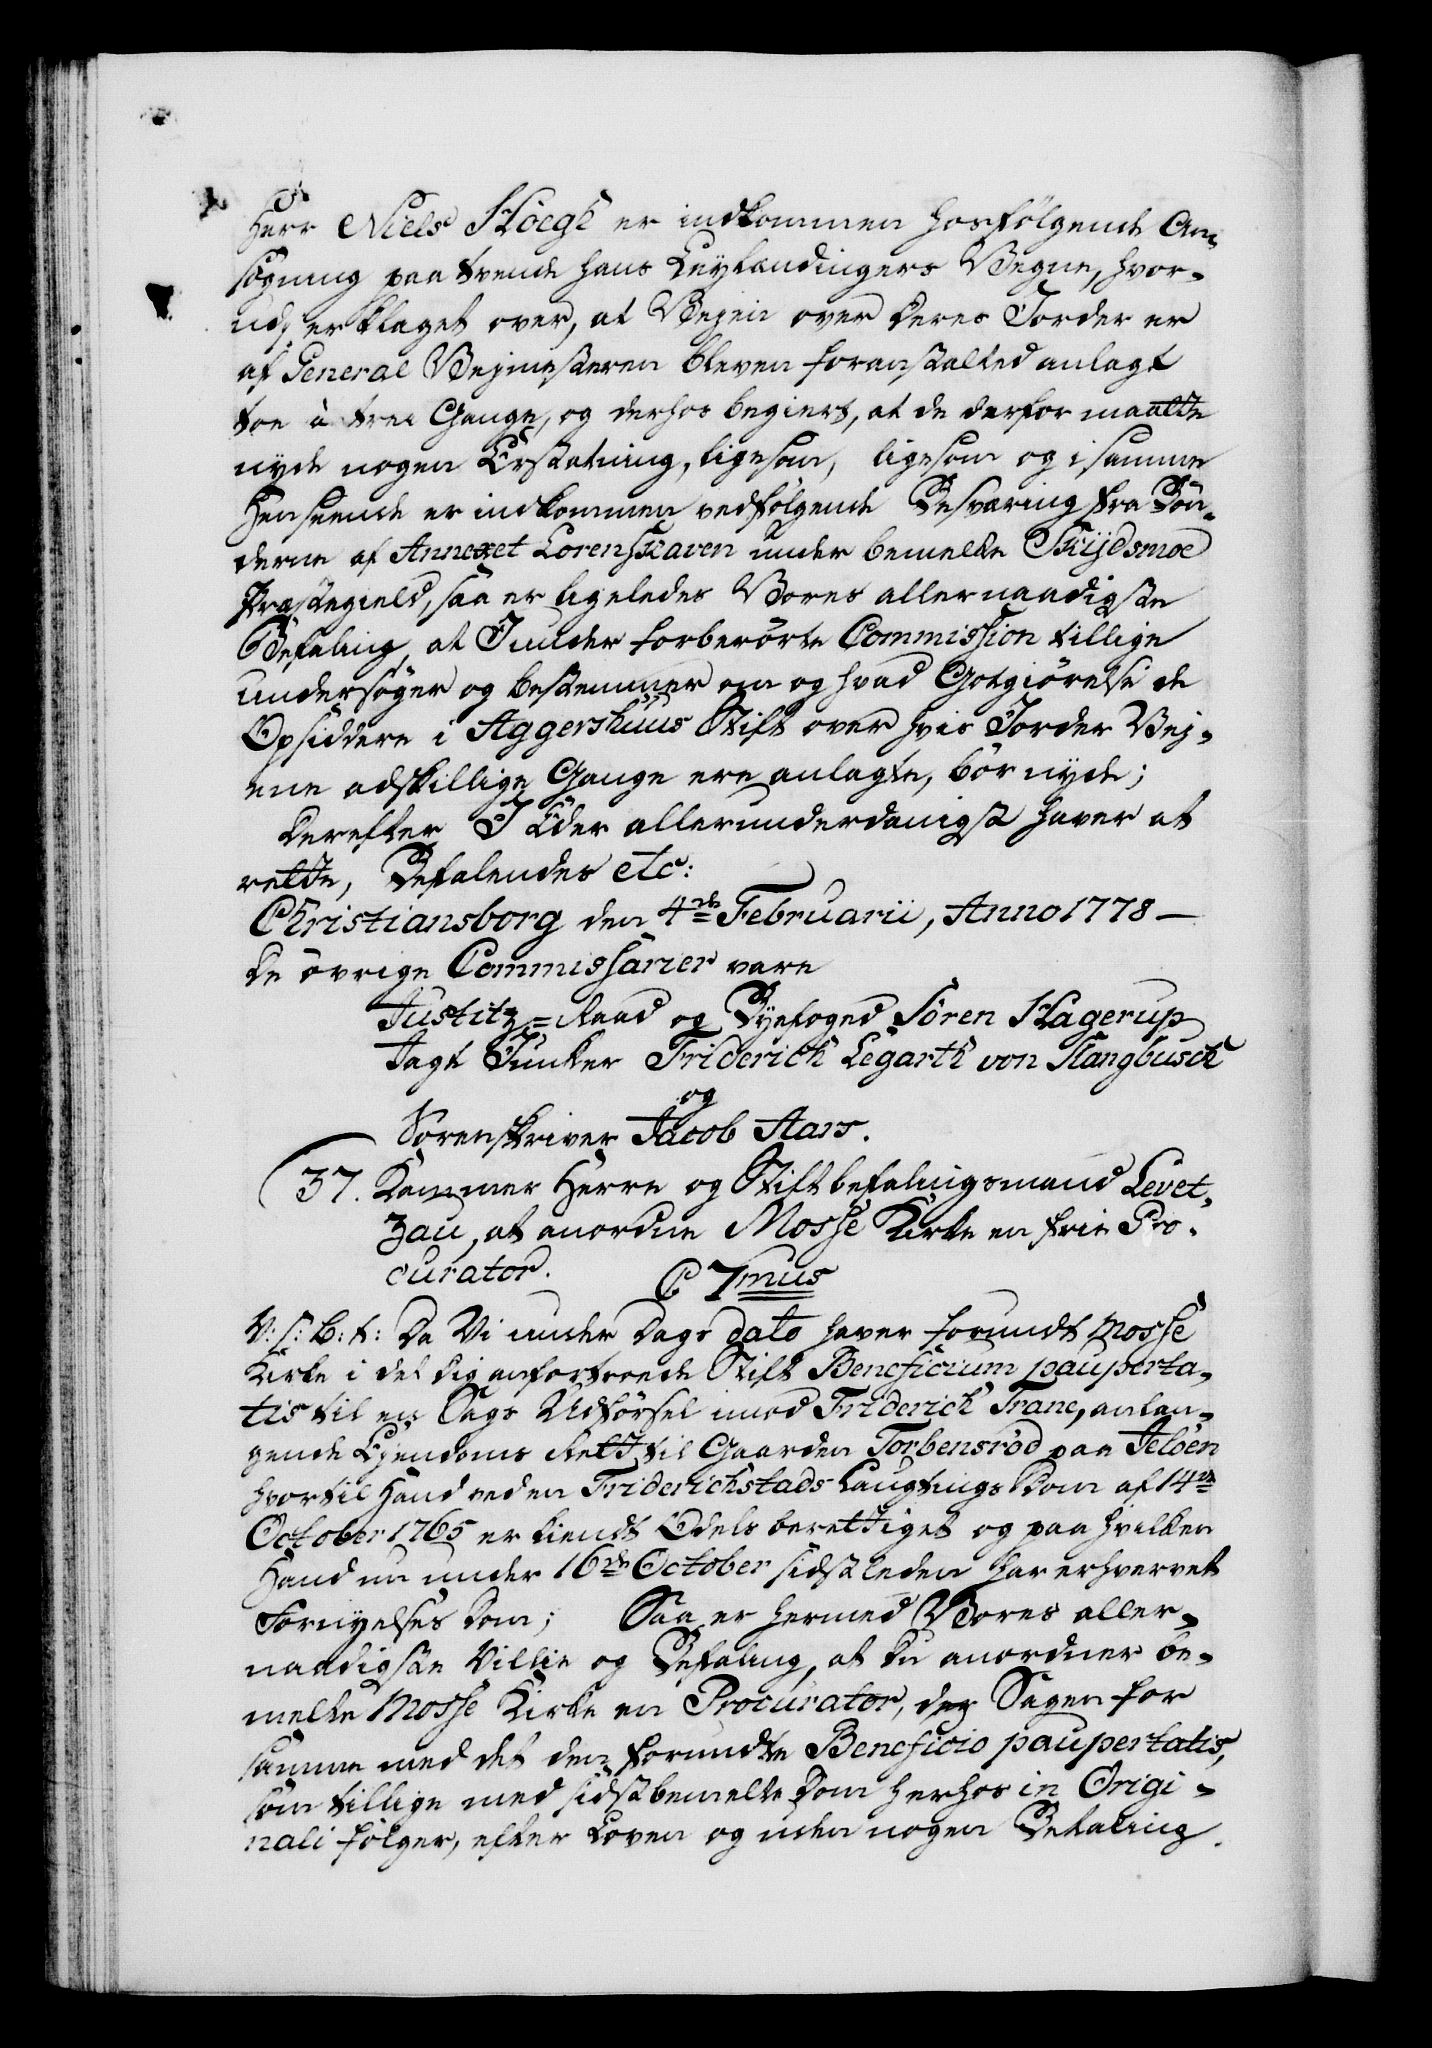 Herr Niels Høegh er indkommen hosfølgende An-
søgning paa tvende hans Leylændingers Vegne, hvor-
udj er klaget over, at Vejen over deres Jorder er
af General Vejmesteren bleven foranstalted anlagt
toe á tree Gange, og derhos begiert, at de derfor maatte
nyde nogen Erstatning, ligesom, ligesom og i samme
Henseende er indkommen vedfølgende Besværing fra Bøn-
derne af Annexet Lorenskaven under bemelte Skydsmoe
Præstegield, saa er ligeledes Vores allernaadigste
Befaling, at I under forberørte Commission tillige
undersøger og bestemmer om og hvad Gotgiørelse de
Opsiddere i Aggershuus Stift over hvis Jorder Vej-
ene adskillige Gange ere anlagte, bør nyde;
Derefter I Eder allerunderdanigst haver at
rette, Befalendes etc:
Christiansborg den 4de Februarii, Anno 1778 —
De øvrige Commissarier vare
Justitz-Raad og Byefoged Søren Hagerup
Jagt Junker Friderich Legarth von Hangbusch
og
Sorenskriver Jacob Aars.
37. Kammer Herre og Stiftbefalingsmand Levet-
zau, at anordne Mosse Kirke en frie Pro-
curator. C 7mus
V: s: b: t: Da Vi under Dags dato haver forundt Mosse
Kirke i det dig anfortroede Stift Beneficium pauperta-
tis til en Sags Udførsel imod Friderich Trane, anlan-
gende Ejendoms Rett til Gaarden Torbensrød paa Jeløen
hvortil Hand ved en Friderichstads Laugtings Dom af 14de
October 1765 er kiendt Odels berettiget og paa hvilken
Hand nu under 16de October sidstleden har erhvervet
Fornyelses Dom; Saa er hermed Vores aller-
naadigste Villie og Befaling, at du anordner be-
melte Mosse Kirke en Procurator, der Sagen for
samme med det den forundte Beneficio paupertatis,
som tillige med sidstbemelte Dom herhos in Origi-
nali følger, efter Loven og uden nogen Betaling.